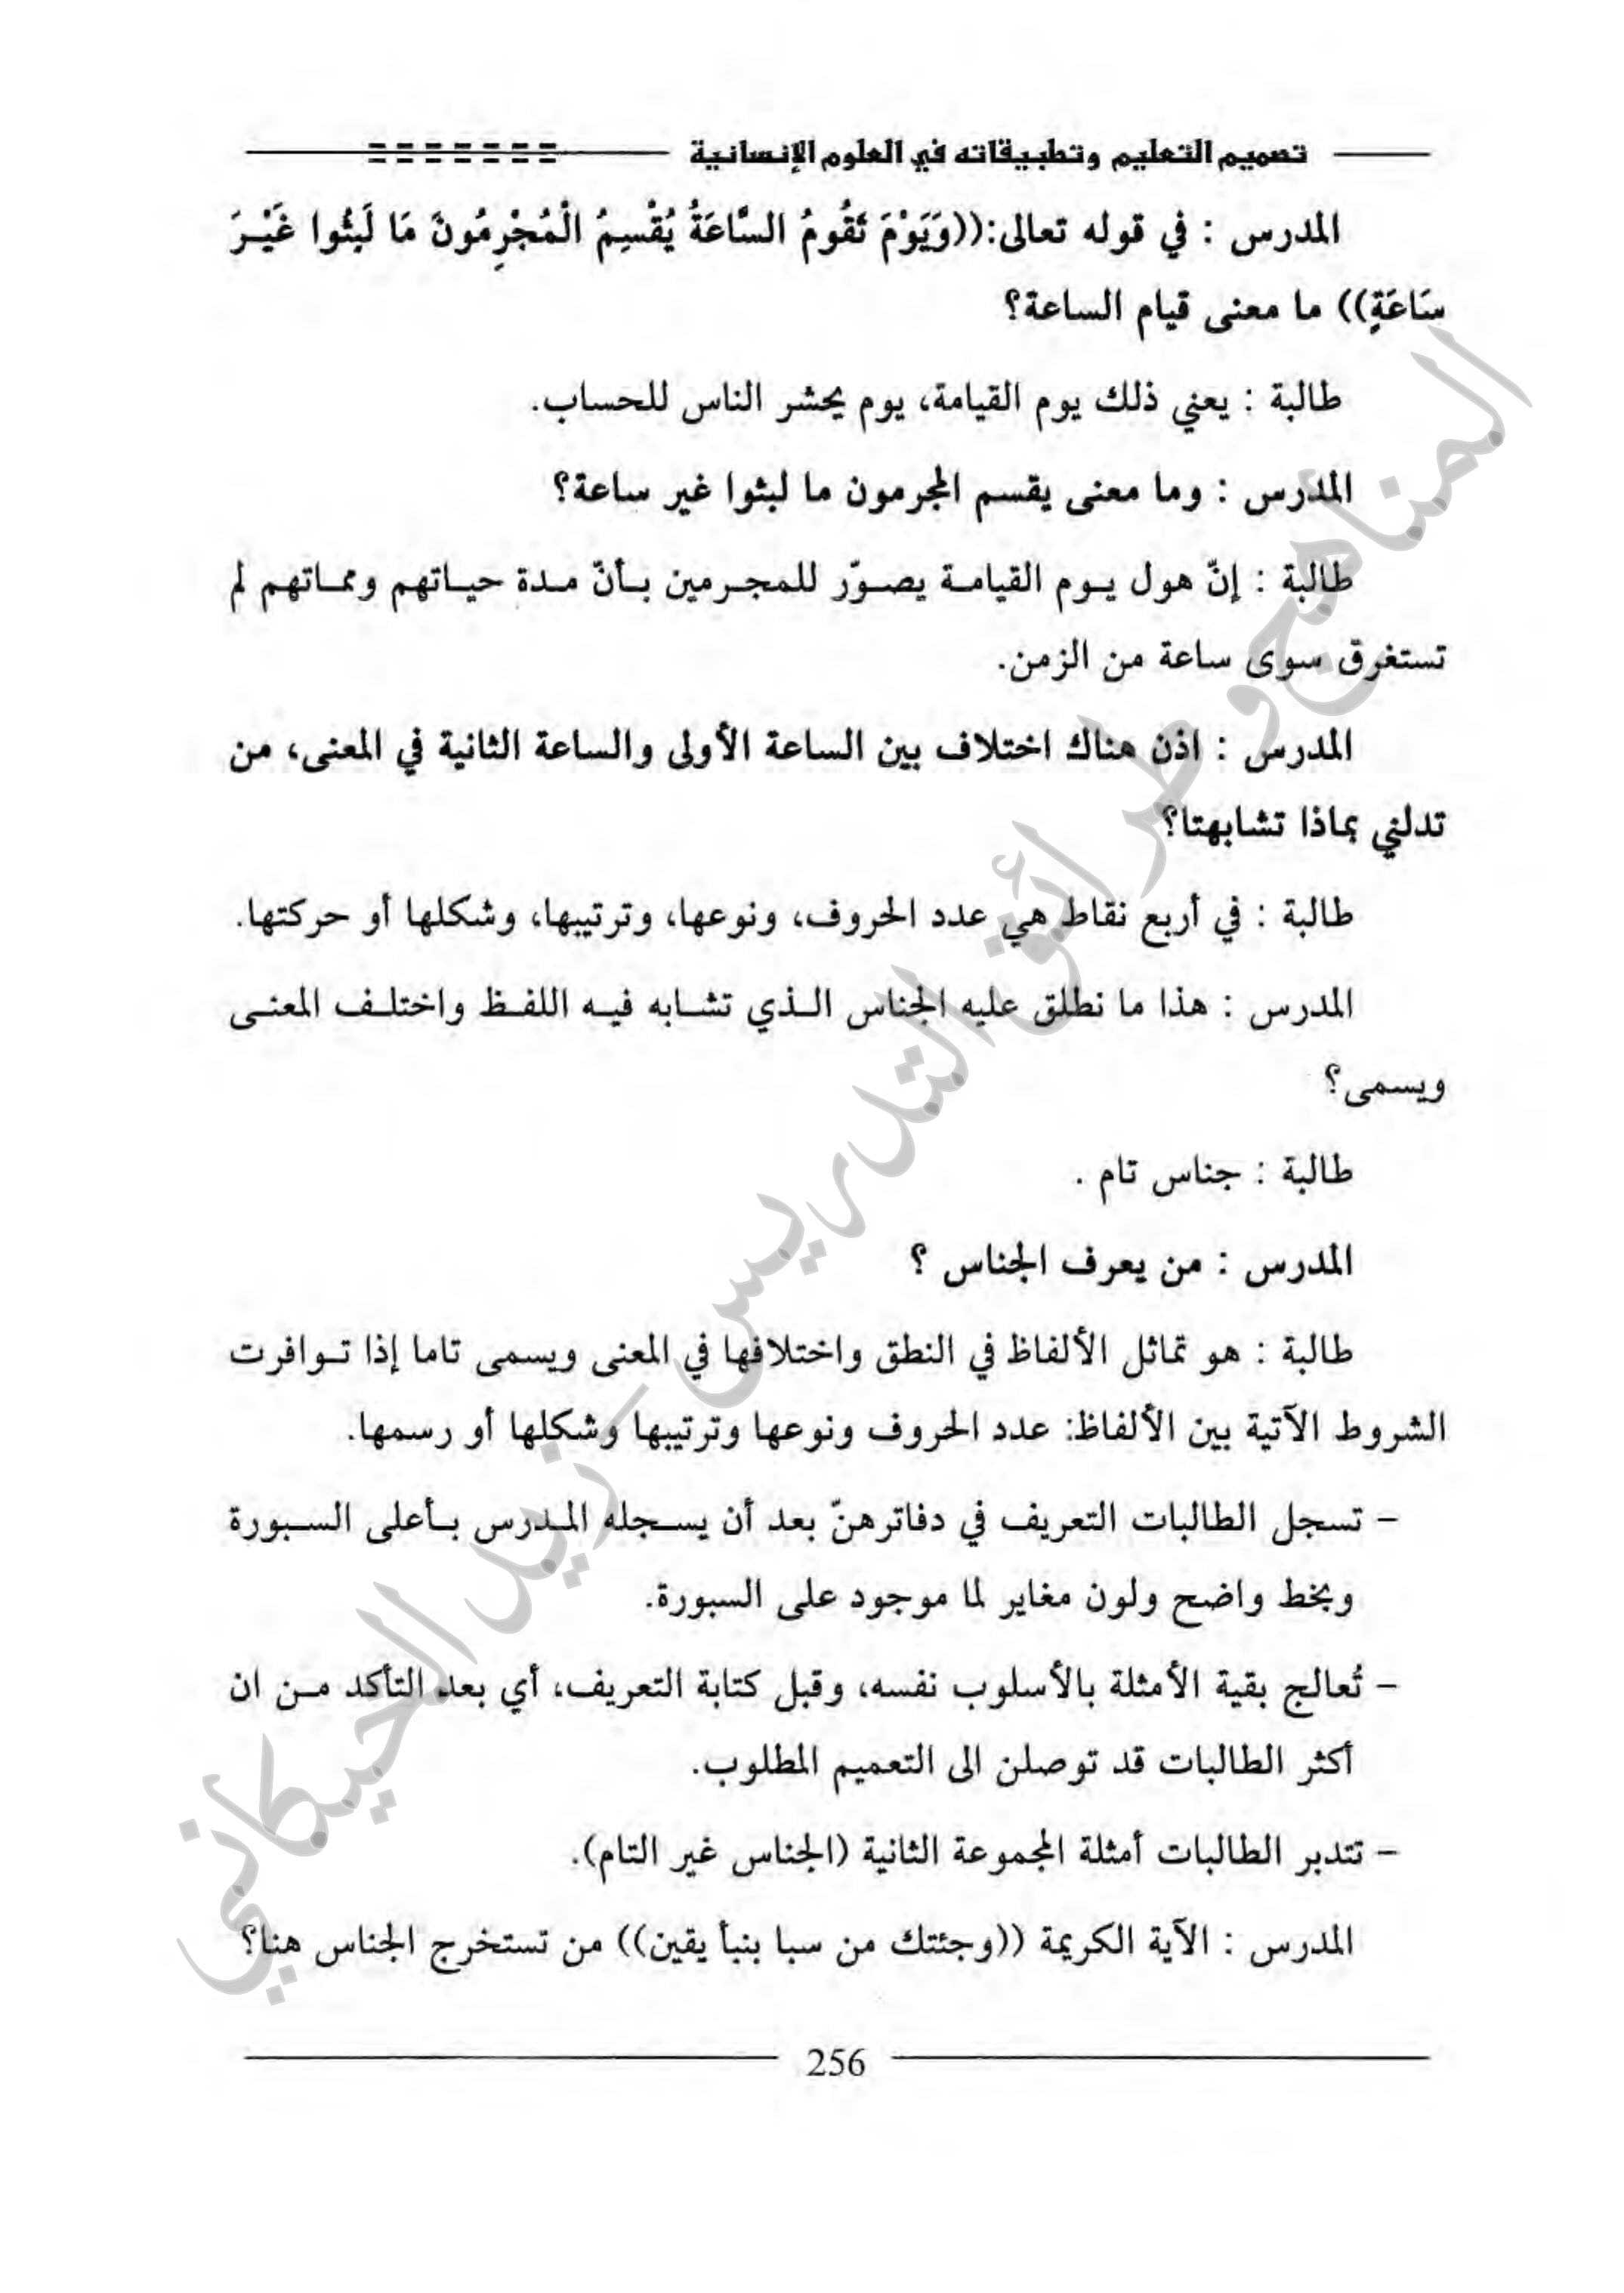 تصميم التعليم وتطبيقاته في العلوم الإنسانية
المدرس : في قوله تعالى:((وَيَوْمَ تَقُومُ السَّاعَةُ يُقْسِمُ الْمُجْرِمُونَ مَا لَبِثُوا غَيْـرَ
سَاعَةٍ)) ما معنى قيام الساعة؟
طالبة : يعني ذلك يوم القيامة، يوم يحشر الناس للحساب.
المدرس : وما معنى يقسم المجرمون ما لبثوا غير ساعة؟
طالبة : إنّ هول يـوم القيامـة يصـوّر للمجـرمين بـأنّ مـدة حيـاتهم وممـاتهم لم
تستغرق سوى ساعة من الزمن.
المدرس : اذن هناك اختلاف بين الساعة الأولى والساعة الثانية في المعنى، من
تدلني بماذا تشابهتا؟
طالبة : في أربع نقاط هي عدد الحروف، ونوعها، وترتيبها، وشكلها أو حركتها.
المدرس : هذا ما نطلق عليه الجناس الـذي تشـابه فيـه اللفـظ واختلـف المعنـى
ويسمى؟
طالبة : جناس تام .
المدرس : من يعرف الجناس ؟
طالبة : هو تماثل الألفاظ في النطق واختلافها في المعنى ويسمى تاما إذا تـوافرت
الشروط الآتية بين الألفاظ: عدد الحروف ونوعها وترتيبها وشكلها أو رسمها.
- تسجل الطالبات التعريف في دفاترهنّ بعد أن يسـجله المـدرس بـأعلى السـبورة
وبخط واضح ولون مغاير لما موجود على السبورة.
- تُعالج بقية الأمثلة بالأسلوب نفسه، وقبل كتابة التعريف، أي بعد التأكد مـن ان
أكثر الطالبات قد توصلن الى التعميم المطلوب.
- تتدبر الطالبات أمثلة المجموعة الثانية (الجناس غير التام).
المدرس : الآية الكريمة ((وجئتك من سبا بنبأ يقين)) من تستخرج الجناس هنا؟
256
المناهج وطرائق التدريس - زيد الحيكاني